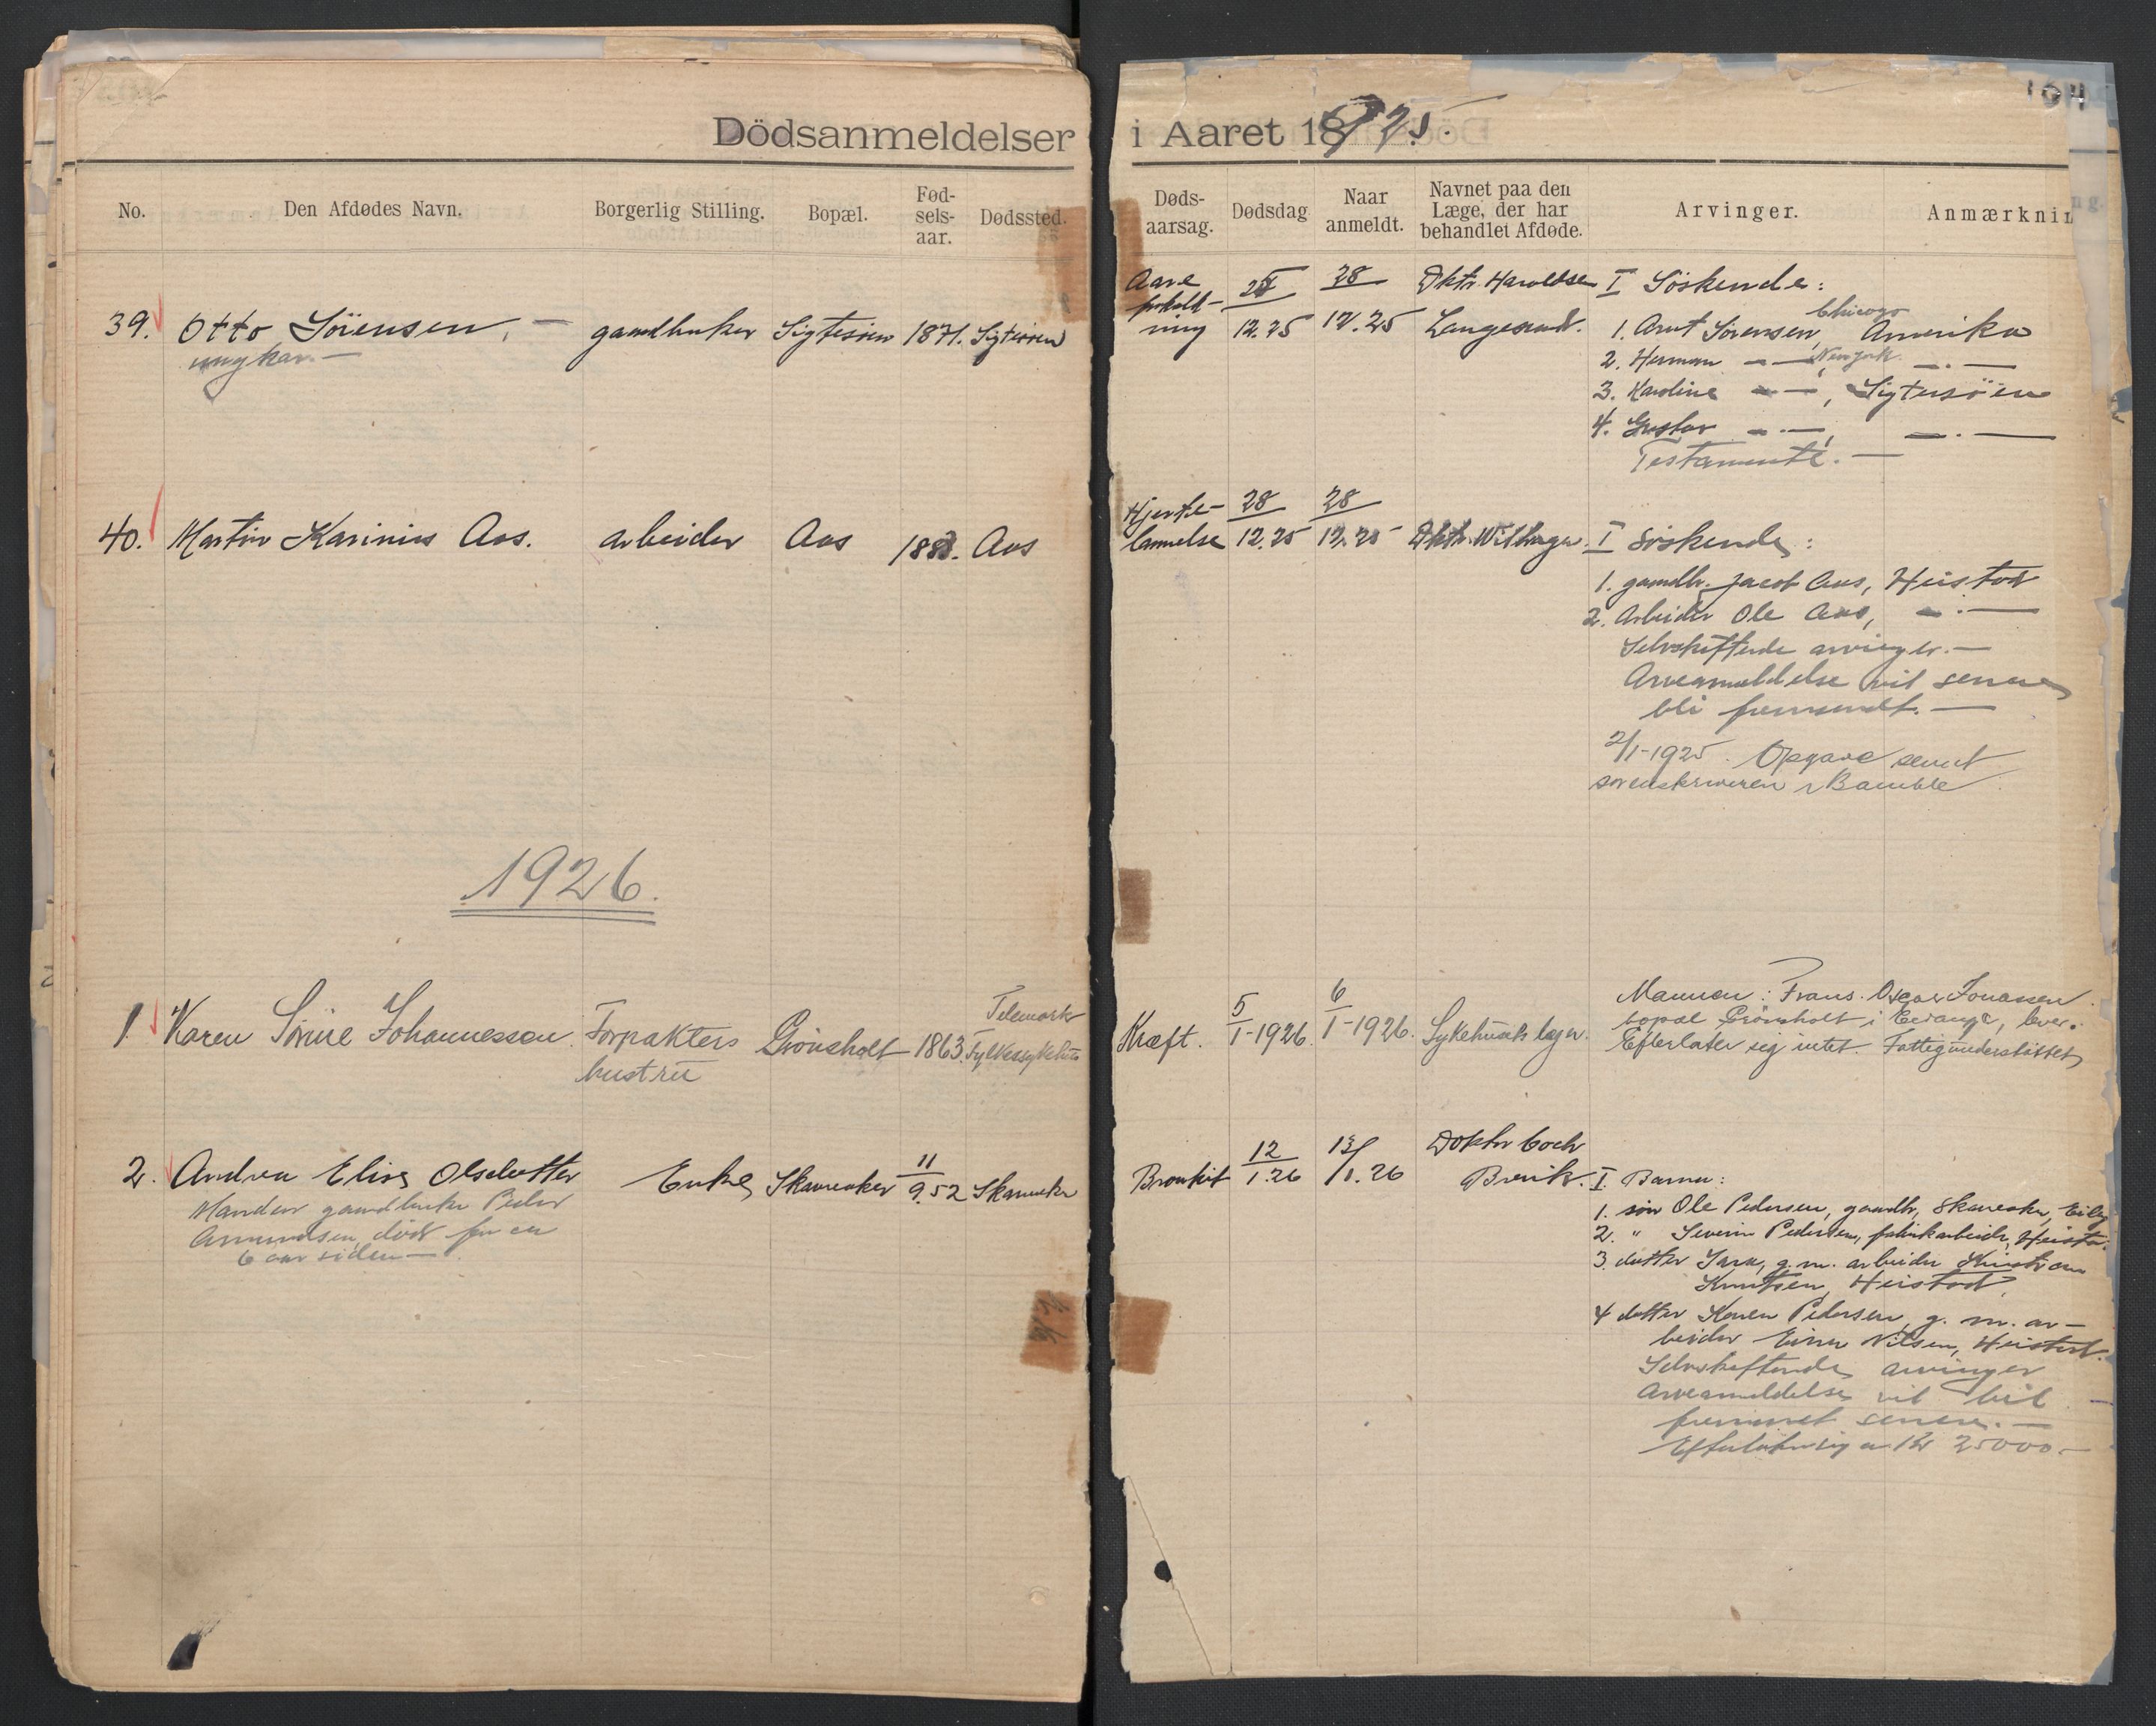 Dödsanmeldelser i Aaret 1925.
104
No. Den Afdødes Navn. Borgerlig Stilling. Bopæl. Fød-
sels-
aar. Dødssted.
Døds-
aarsag. Dødsdag Naar
anmeldt. Navnet paa den
Læge, der har
behandlet Afdøde. Arvinger. Anmærknin
39. Otto Sörensen, —
ungkar. —
gaardbruker Sigtesöen 1871. Sigtesöen
Aare
forkalk-
ning
12.25
28
12.25
Dktr. Haroldsen
Langesund.
I Söskende:
1. Arnt Sörensen, Chicago Amerika
2. Herman — — Newyork — . —
3. Karoline — —, Sigtesöen
4. Gustav — . —, — . —
Testamente. —
40. Martin Karinius Aas. arbeider Aas 1883. Aas
Hjerte-
lammelse
28
12.25
28
12.25
Dktr.
I Söskende:
1. gaardbr. Jacob Aas, Heistad
2. Arbeider Ole Aas, — . —
Selvskiftende arvinger. —
Arveanmeldelse vil senere
bli fremsendt. —
2/1-1925. Opgave sendt
sorenskriveren i Bamble
1926.
1. Karen Sörine Johannessen. Forpakters
hustru
Grönsholt 1863. Telemark
Fylkessykehus
Kræft.
5
1-1926.
6
1-1926.
Sykehusets læger.
Mannen: Frans Oscar Jonassen.
bopæl Grönsholt i Eidanger, lever.
Efterlater sig intet. Fattigunderstöttet
2. Andrea Elise Olsdatter
Manden gaardbruker Peder
Amundsen, död for ca
6 aar siden —.
Enke, Skavraaker 11
9.52 Skavraaker
Bronkit
12
1.26
13/
/1.26
Doktor Coch
Brevik.
I Barn:
1. sön Ole Pedersen, gaardbr, Skavraaker,
2. " Severin Pedersen, fabrikarbeider, Heistad.
3. datter Sara, g.m. arbeider Kristian
Knutsen, Heistad,
4 datter Karen Pedersen, g. m. ar-
beider Einar Nilsen, Heistad.
Selvskiftende arvinger
Arveanmeldelse vil bli —
fremmet senere. —
Efterlater sig ca. Kr 25000.-